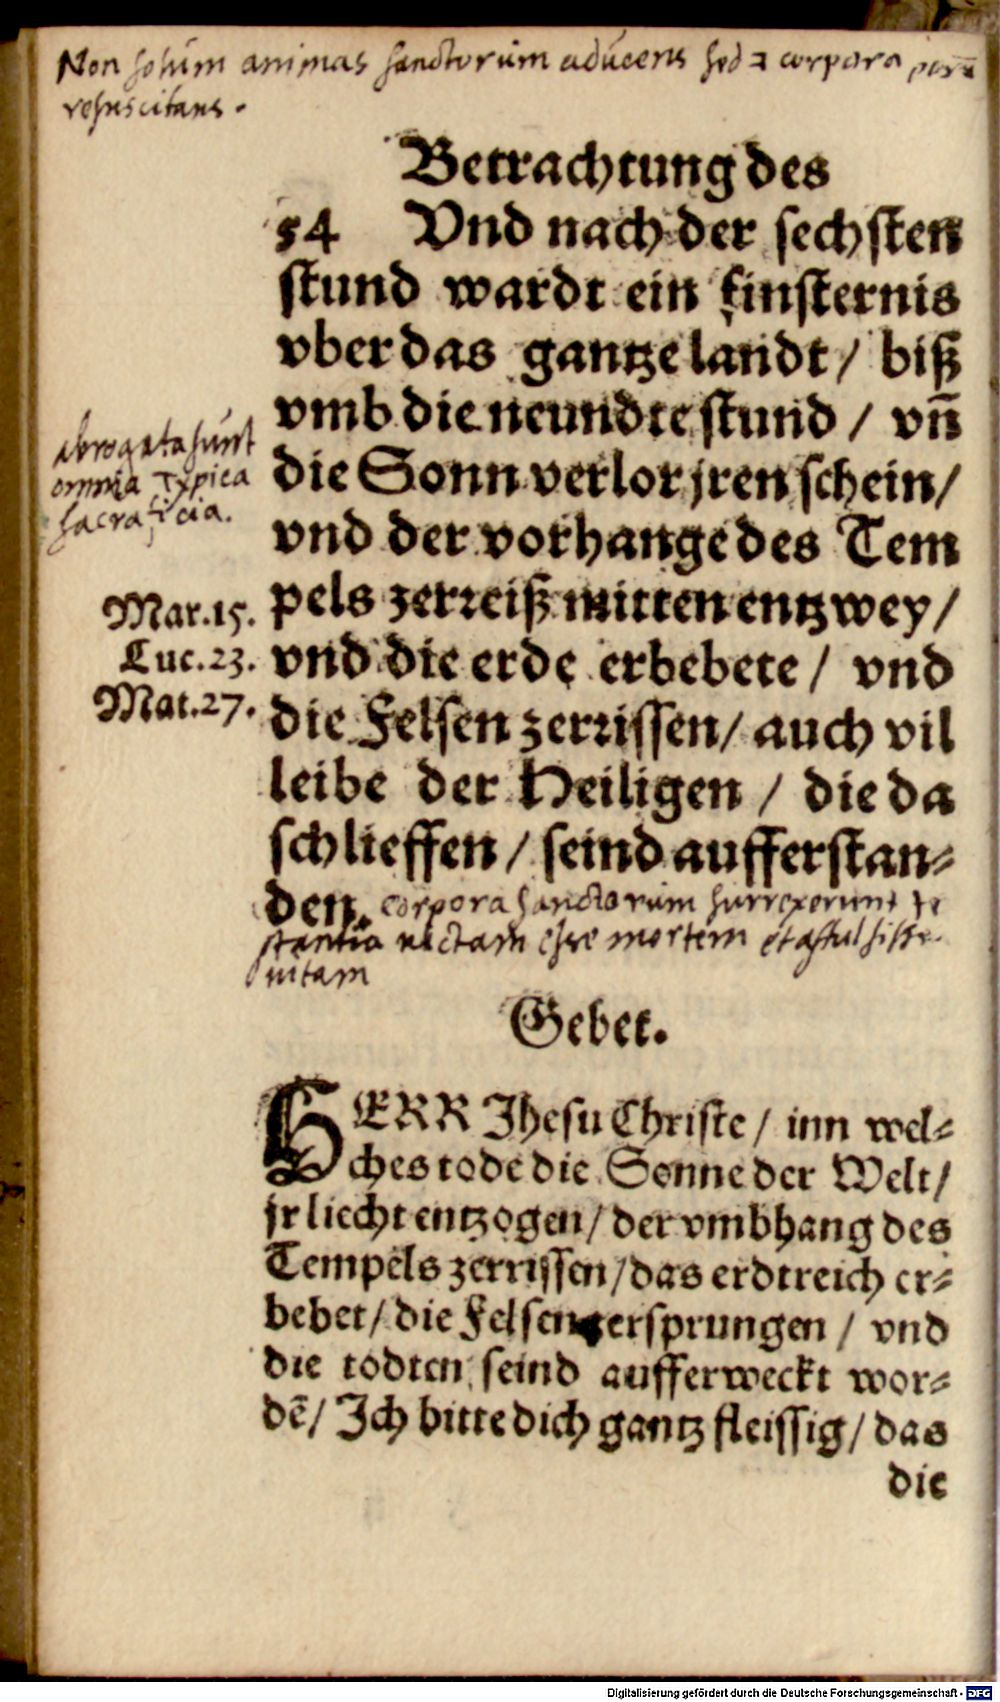 Non solum animas sanctorum aducens sed ⁊ corpora
resuscitans.
Betrachtung des
54 Vnd nach der sechsten
stund wardt ein finsternis
vber das gantze landt / biß
vmb die neundte stund / vn̄
die Sonn verlor jren schein /
vnd der vorhange des Tem
pels zerreiß mitten entzwey /
vnd die erde erbebete / vnd
die Felsen zerrissen / auch vil
leibe der Heiligen / die da
schlieffen / seind aufferstan⸗
den.
abrogata sunt
omnia Typica
sacrificia.
Mar.15.
Luc.23.
Mat.27.
corpora sanctorum surrexerunt te
stantia victam esse mortem et
vitam
Gebet.
HERR Jhesu Christe / inn wel⸗
ches tode die Sonne der Welt /
jr liecht entzogen / der vmbhang des
Tempels zerrissen / das erdtreich er⸗
bebet / die Felsen zersprungen / vnd
die todten seind aufferweckt wor⸗
dē / Ich bitte dich gantz fleissig / das
die
Digitalisierung gefördert durch die Deutsche Forschungsgemeinschaft - DFG